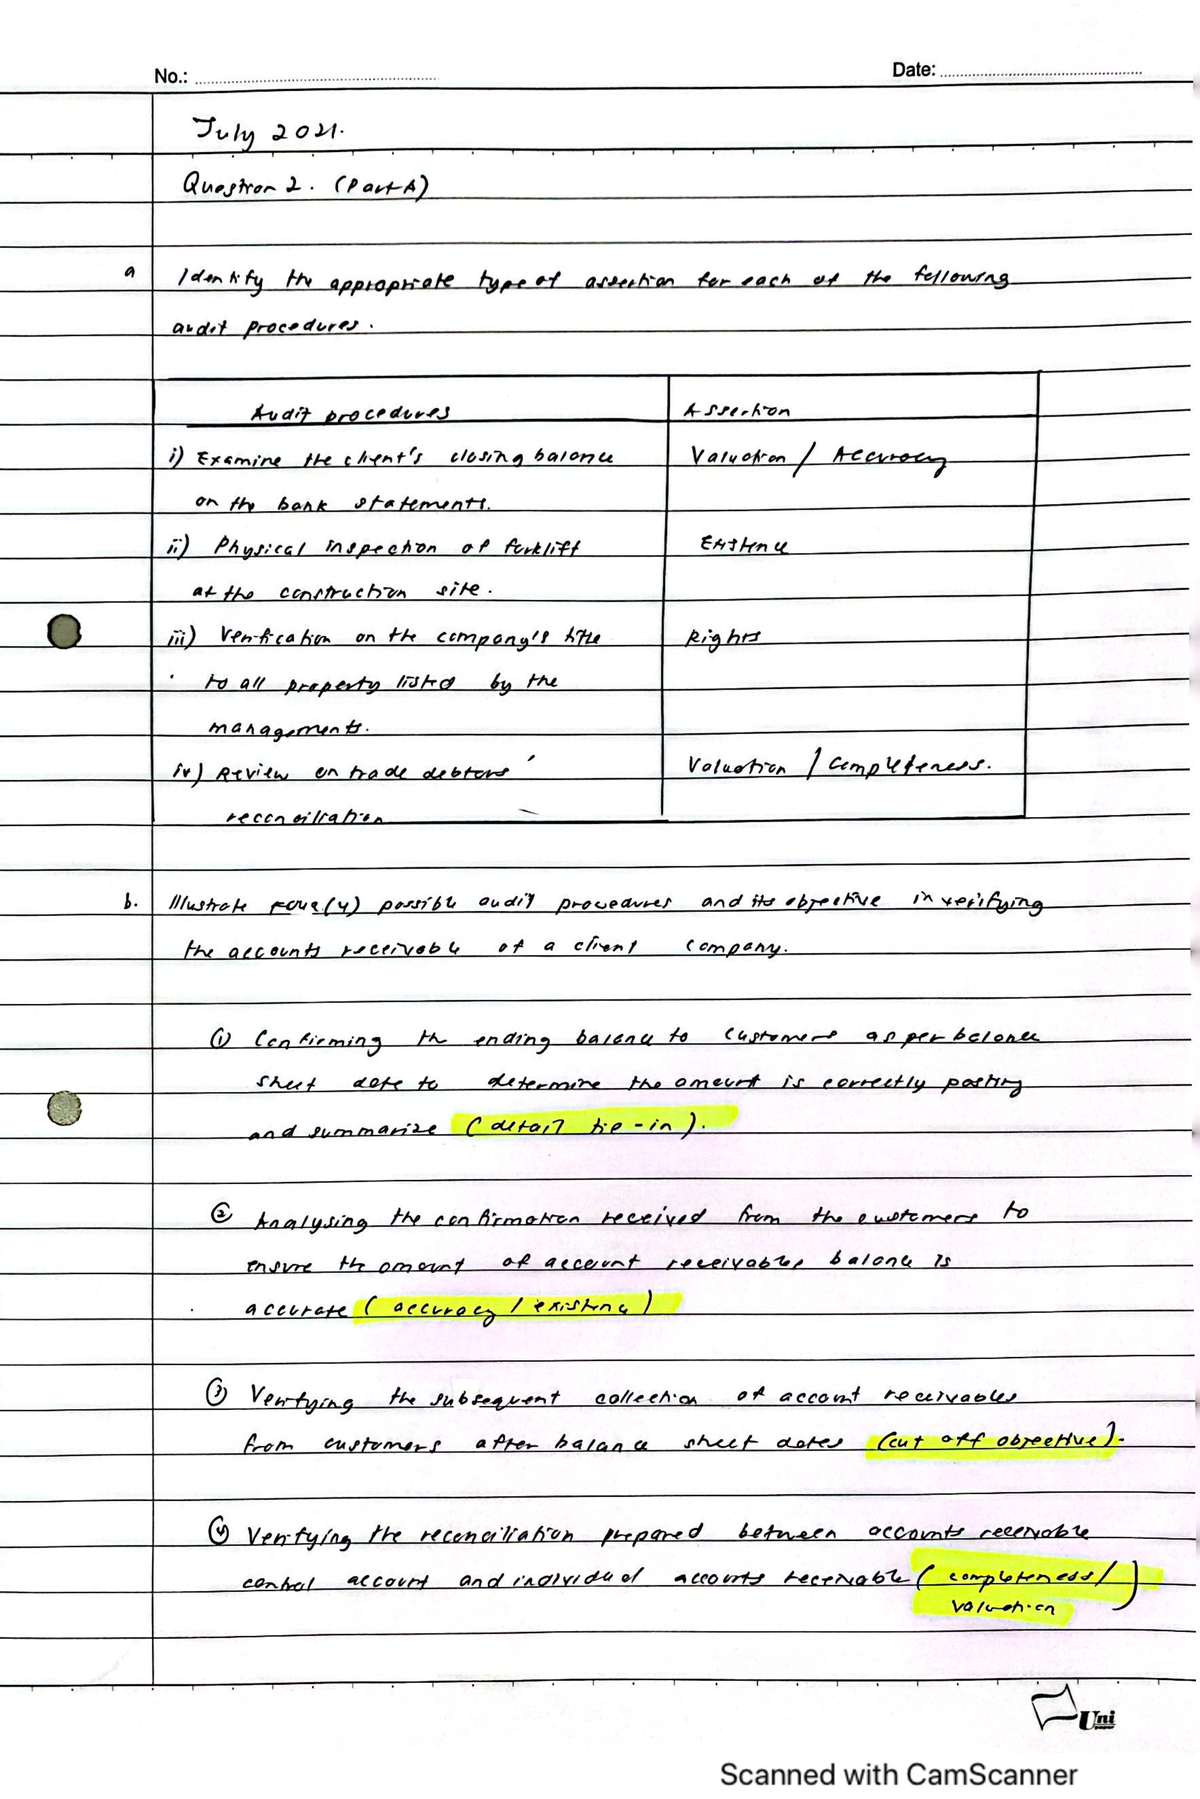 No.:
Date:
July 2021.
Question 2. (Part A)
a Identify the appropriate type of assertion for each of the following
audit procedures.
Audit procedures Assertion
i) Examine the client's closing balance Valuation / Accuracy
on the bank statements.
ii) Physical inspection of forklift Existence
at the construction site.
iii) Verification on the company's title Rights
to all property listed by the
managements.
iv) Review on trade debtors' Valuation / Completeness.
reconciliation
b. Illustrate four (4) possible audit procedures and its objective in verifying
the accounts receivable of a client company.
① Confirming the ending balance to customers as per balance
sheet date to determine the amount is correctly posting
and summarize (detail tie-in).
② Analysing the confirmation received from the customers to
ensure the amount of account receivables balance is
accurate (accuracy / existence)
③ Verifying the subsequent collection of account receivables
from customers after balance sheet dates (cut off objective).
④ Verifying the reconciliation prepared between accounts receivable
control account and individual accounts receivable (completeness/
valuation)
Uni
Scanned with CamScanner